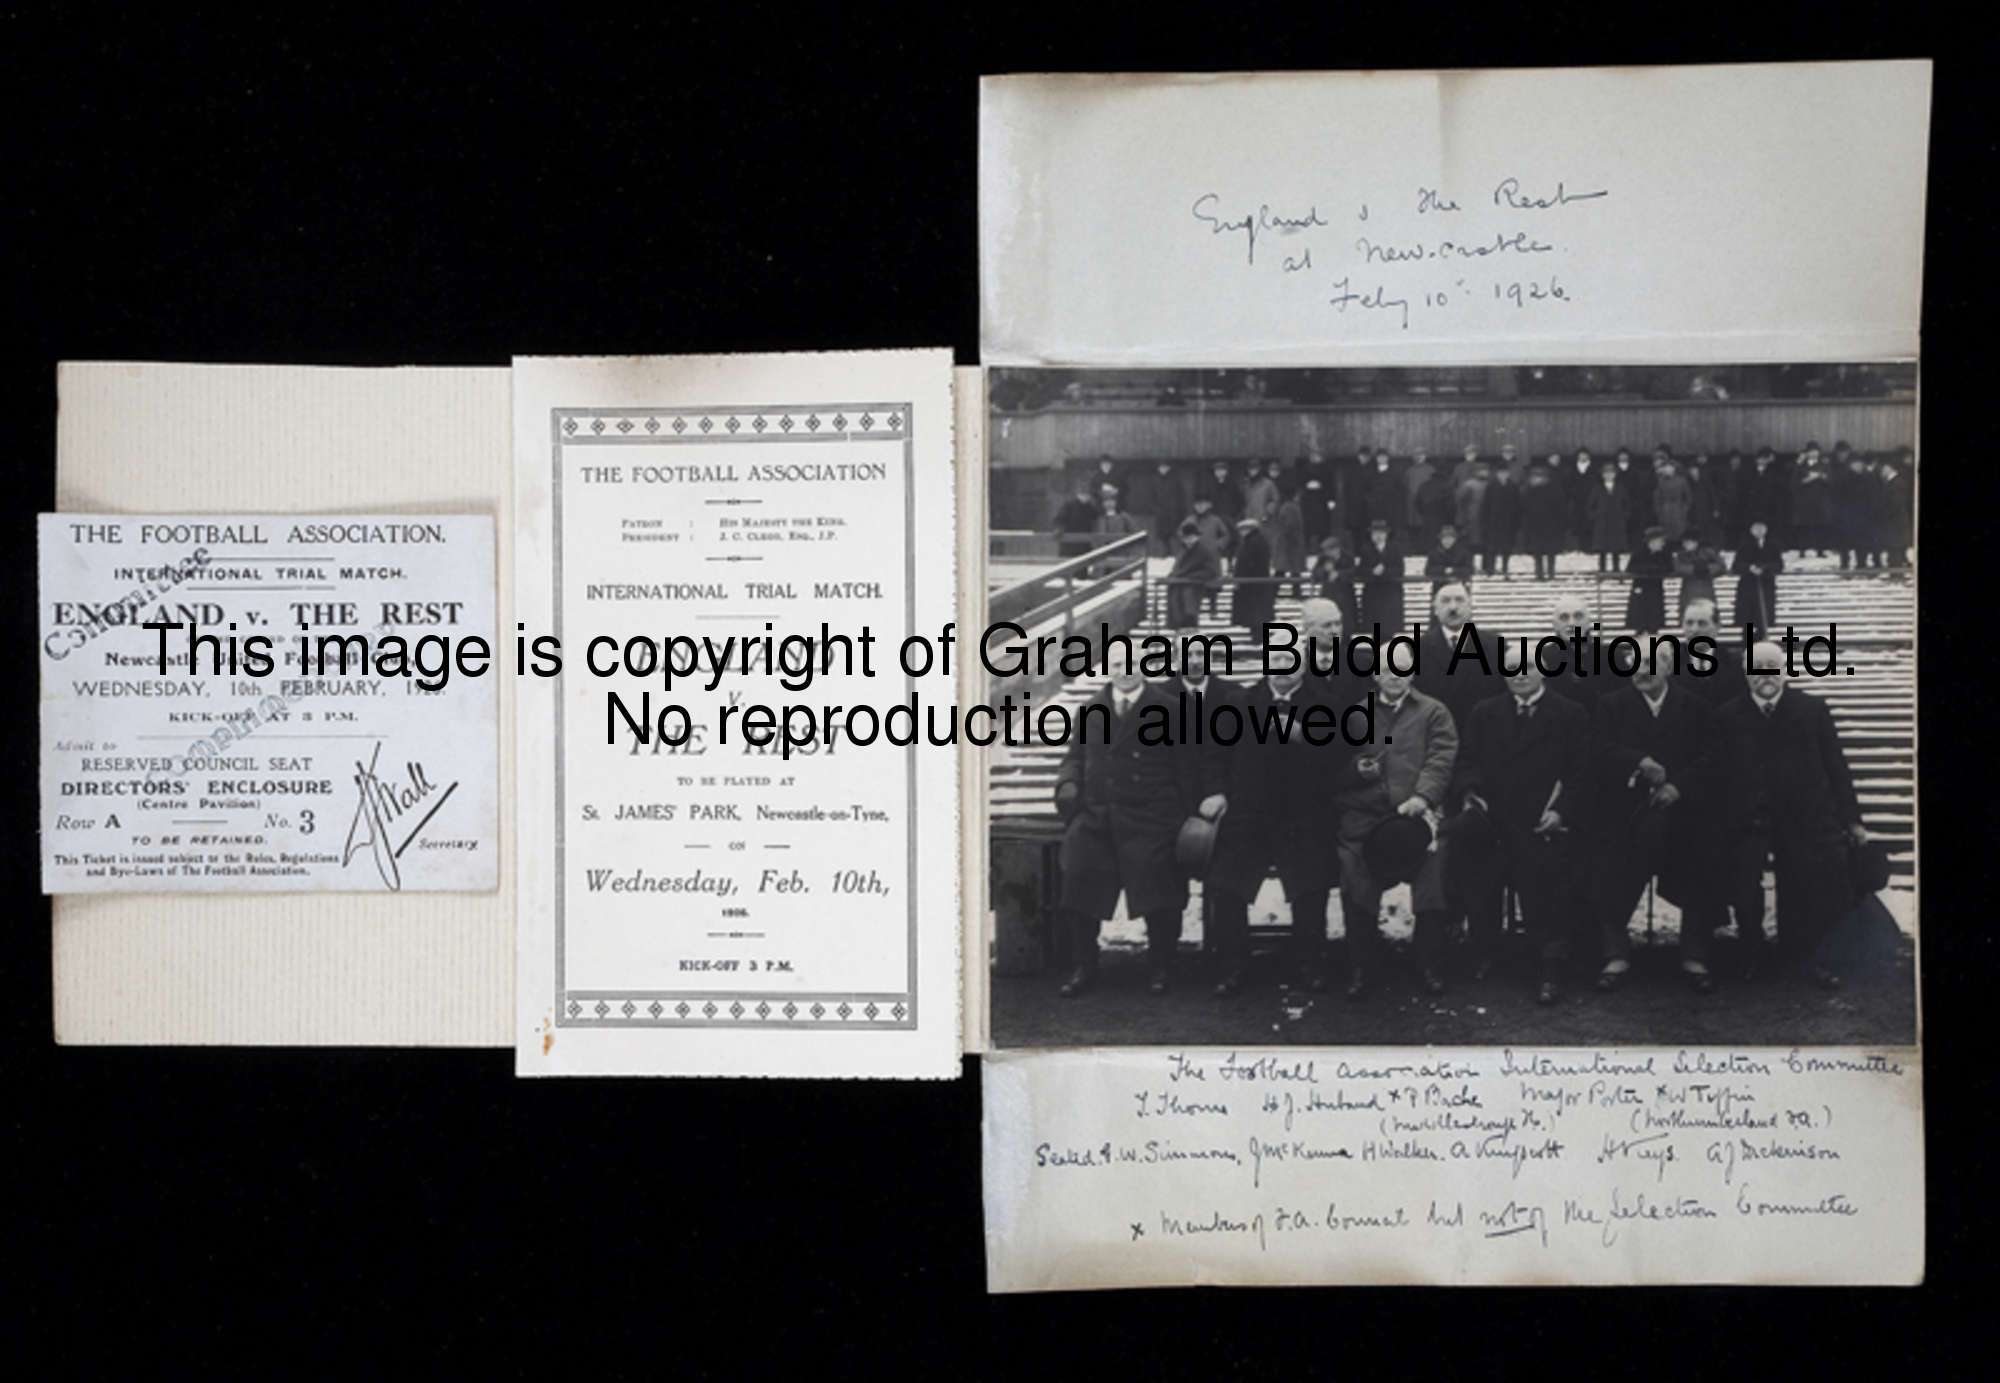 THE FOOTBALL ASSOCIATION.
INTERNATIONAL TRIAL MATCH.
ENGLAND v. THE REST
Newcastle United Football Club,
WEDNESDAY, 10th FEBRUARY, 1926.
KICK-OFF AT 3 P.M.
Admit to
RESERVED COUNCIL SEAT
DIRECTORS' ENCLOSURE
(Centre Pavilion)
Row A No. 3
TO BE RETAINED.
This Ticket is issued subject to the Rules, Regulations
and Bye-Laws of The Football Association.
Committee
COMPLIMENTARY
Secretary
THE FOOTBALL ASSOCIATION
PATRON : HIS MAJESTY THE KING.
PRESIDENT : J. C. CLEGG, ESQ., J.P.
INTERNATIONAL TRIAL MATCH.
ENGLAND
v.
THE REST
TO BE PLAYED AT
St. JAMES' PARK, Newcastle-on-Tyne,
ON
Wednesday, Feb. 10th,
1926.
KICK-OFF 3 P.M.
England v The Rest
at Newcastle.
Feby 10th 1926.
The Football Association International Selection Committee
T. Thorne H.J. Huband x P Bache Major Porter x W Tiffin
(Middlesbrough) (Northumberland F.A.)
Seated. G.W. Simmons, J McKenna H Walker. A Kingscott H Keys. A J Dickinson
x Members of F.A. Council but not of the Selection Committee
This image is copyright of Graham Budd Auctions Ltd.
No reproduction allowed.